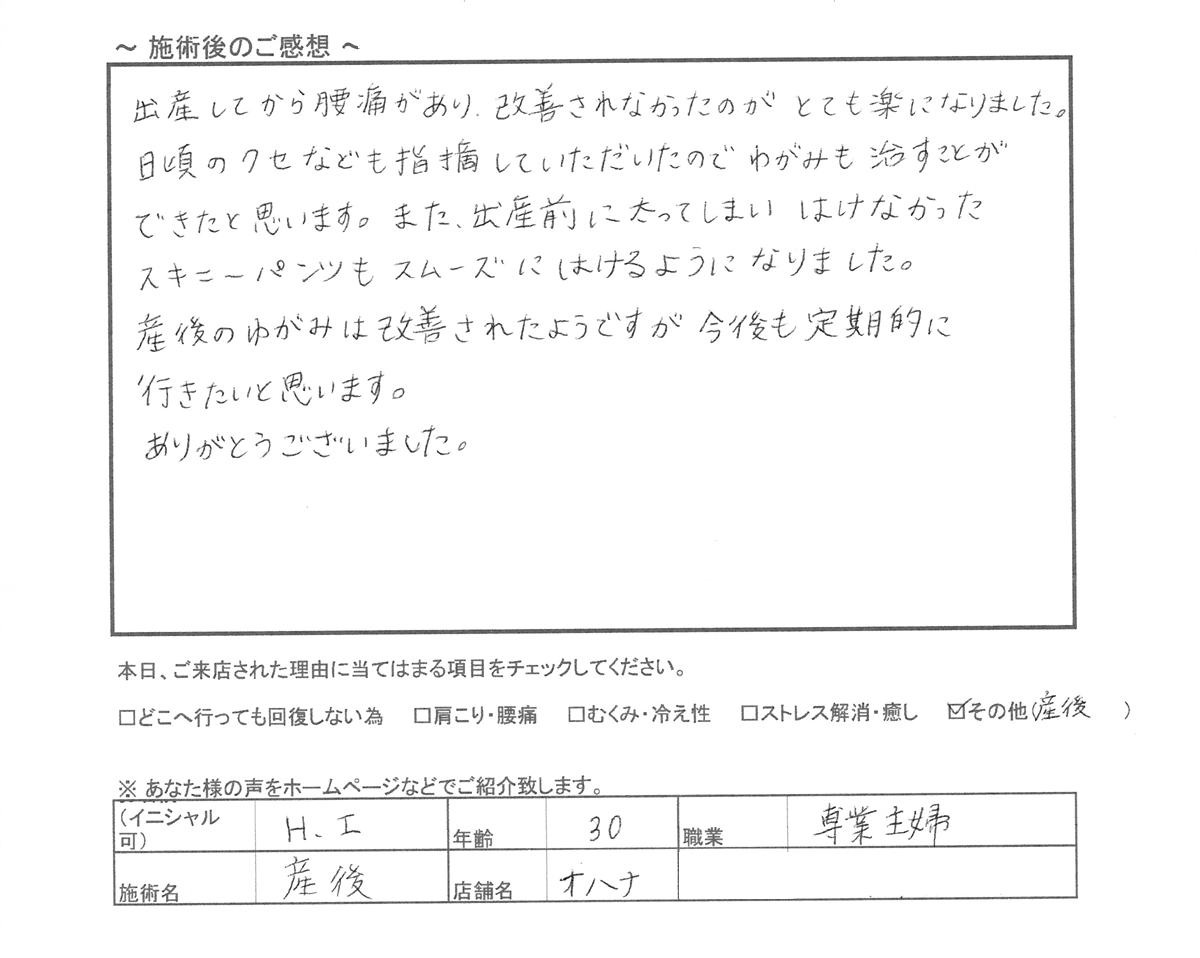 ～ 施術後のご感想 ～
出産してから腰痛があり、改善されなかったのが とても楽になりました。
日頃のクセなども指摘していただいたので わがみも 治すことが
できたと思います。また、出産前に太ってしまい はけなかった
スキニーパンツも スムーズに はけるようになりました。
産後のゆがみは改善されたようですが 今後も定期的に
行きたいと思います。
ありがとうございました。
本日、ご来店された理由に当てはまる項目をチェックしてください。
□どこへ行っても回復しない為 □肩こり・腰痛 □むくみ・冷え性 □ストレス解消・癒し ☑その他(産後 )
※ あなた様の声をホームページなどでご紹介致します。
(イニシャル可) H.I 年齢 30 職業 専業主婦
施術名 産後 店舗名 オハナ